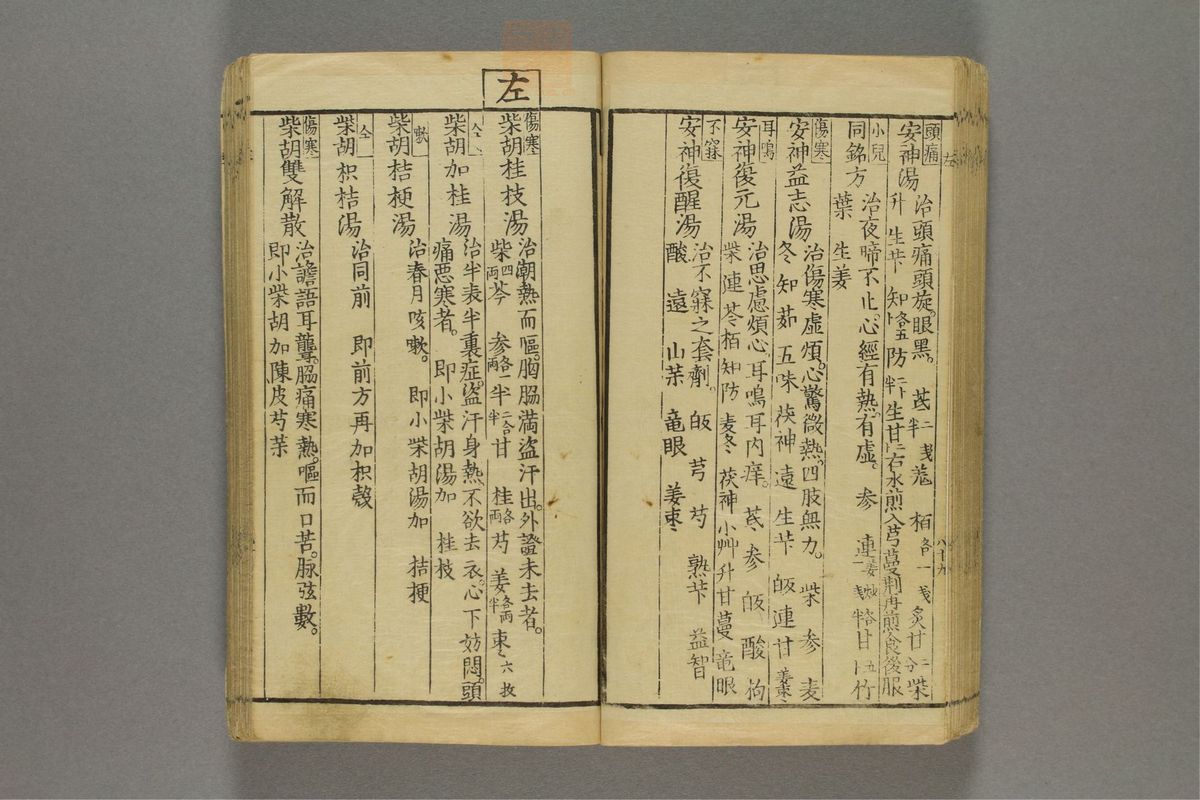 頭痛
安神湯
治頭痛頭旋。眼黒。 芪半二戋羗 栢各一戋炙甘二分柴
升 生芐 知各五卜防二卜半生甘二卜右水煎入芎蔓荆再煎食後服
小兒
同銘方
治夜啼不止。心經有熱。有虚。 参 連
葉 生姜
傷寒
安神益志湯
治傷寒虚煩。心驚微熱。四肢無力。 柴 参 麦
冬 知 茹 五味 茯神 遠 生芐 皈 連 甘 姜枣
耳鳴
安神復元湯
治思慮煩心。耳鳴耳内痒。 芪 参 皈 酸 枸
柴 連 芩 栢 知 防 麦冬 茯神 小艸 升 甘 蔓 竜眼
不寐
安神復醒湯
治不寐之套劑。 皈 芎 芍 熟芐 益智
酸 遠 山茱 竜眼 姜枣
八十九
左
傷寒
柴胡桂枝湯
治潮熱而嘔。胸脇満盗汗出。外證未去者。
柴四両芩 参各一両半半二合半甘 桂各両芍 姜各両半枣六枚
仝
柴胡加桂湯
治半表半裏症。盗汗身熱不欲去衣。心下妨悶。頭
痛悪寒者。 即小柴胡湯加 桂枝
嗽
柴胡桔梗湯
治春月咳嗽。 即小柴胡湯加 桔梗
仝
柴胡枳桔湯
治同前 即前方再加枳殻
傷寒
柴胡雙解散
治譫語耳聾。脇痛寒熱。嘔而口苦。脉弦數。
即小柴胡加陳皮芍茱